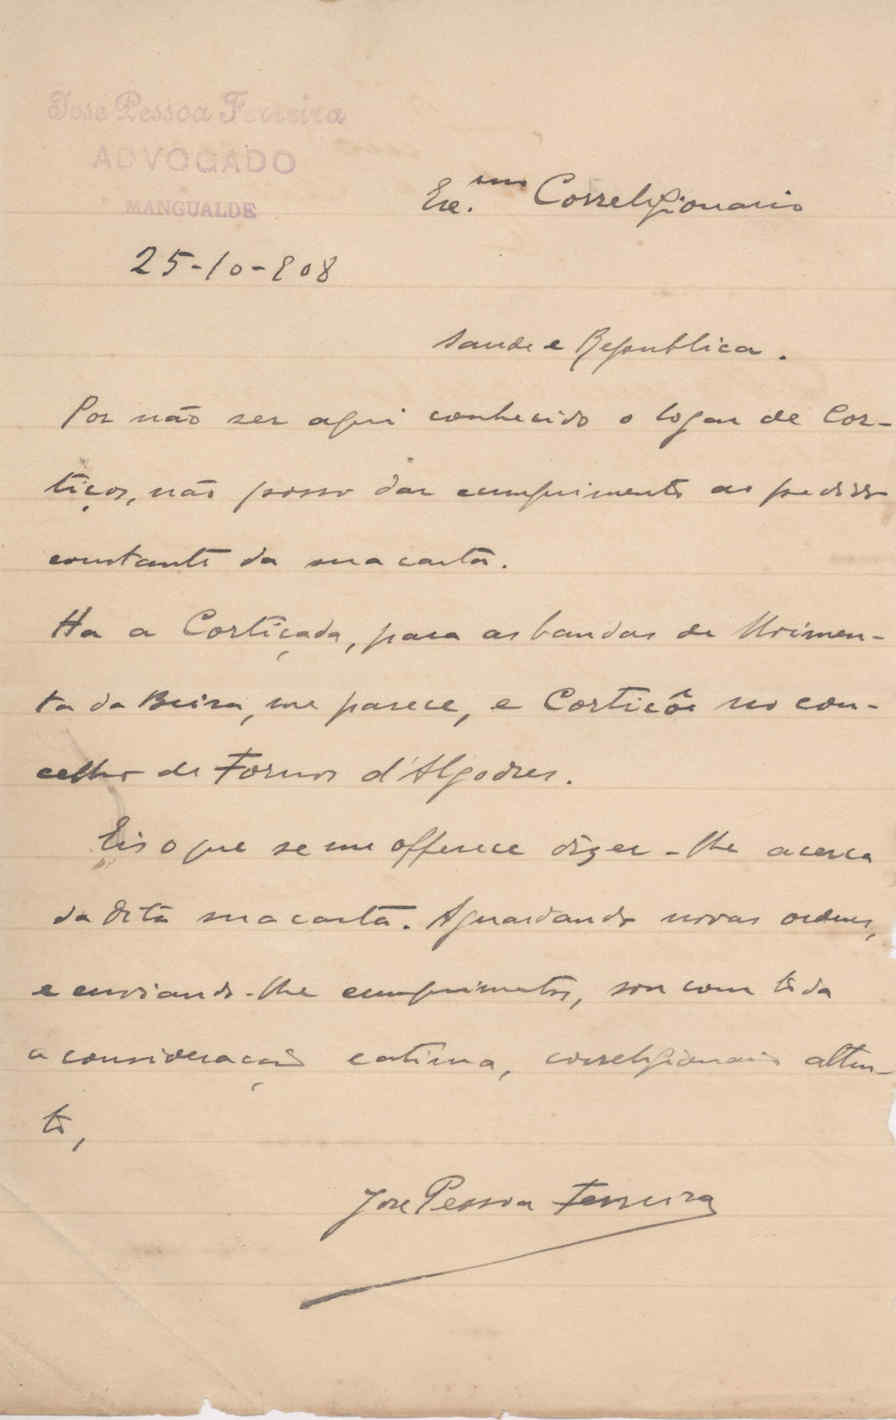 José Pessoa Ferreira
ADVOGADO
MANGUALDE
Exc.mo Correligionario
25-10-908
Saude e Republica.
Por não ser aqui conhecido o logar de Cor-
tiços, não posso dar cumprimento ao pedido
constante da sua carta.
Ha a Cortiçada, para as bandas de Moimen-
ta da Beira, me parece, e Cortiçô no con-
celho de Fornos d'Algodres.
Eis o que se me offerece dizer-lhe acerca
da dita sua carta. Aguardando novas ordens,
e enviando-lhe cumprimentos, sou com toda
a consideração e estima, correligionario atten-
to,
José Pessoa Ferreira